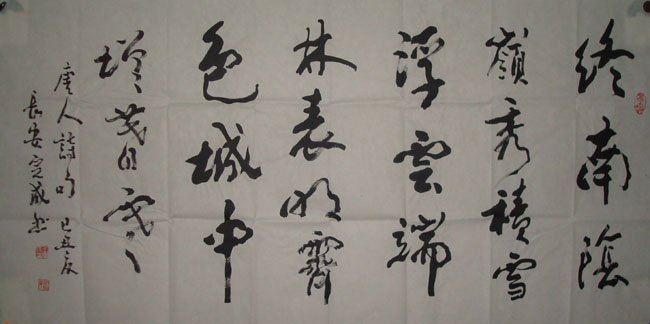 終南陰
嶺秀積雪
浮雲端
林表明霽
色城中
增暮寒
唐人詩句 己丑
長安